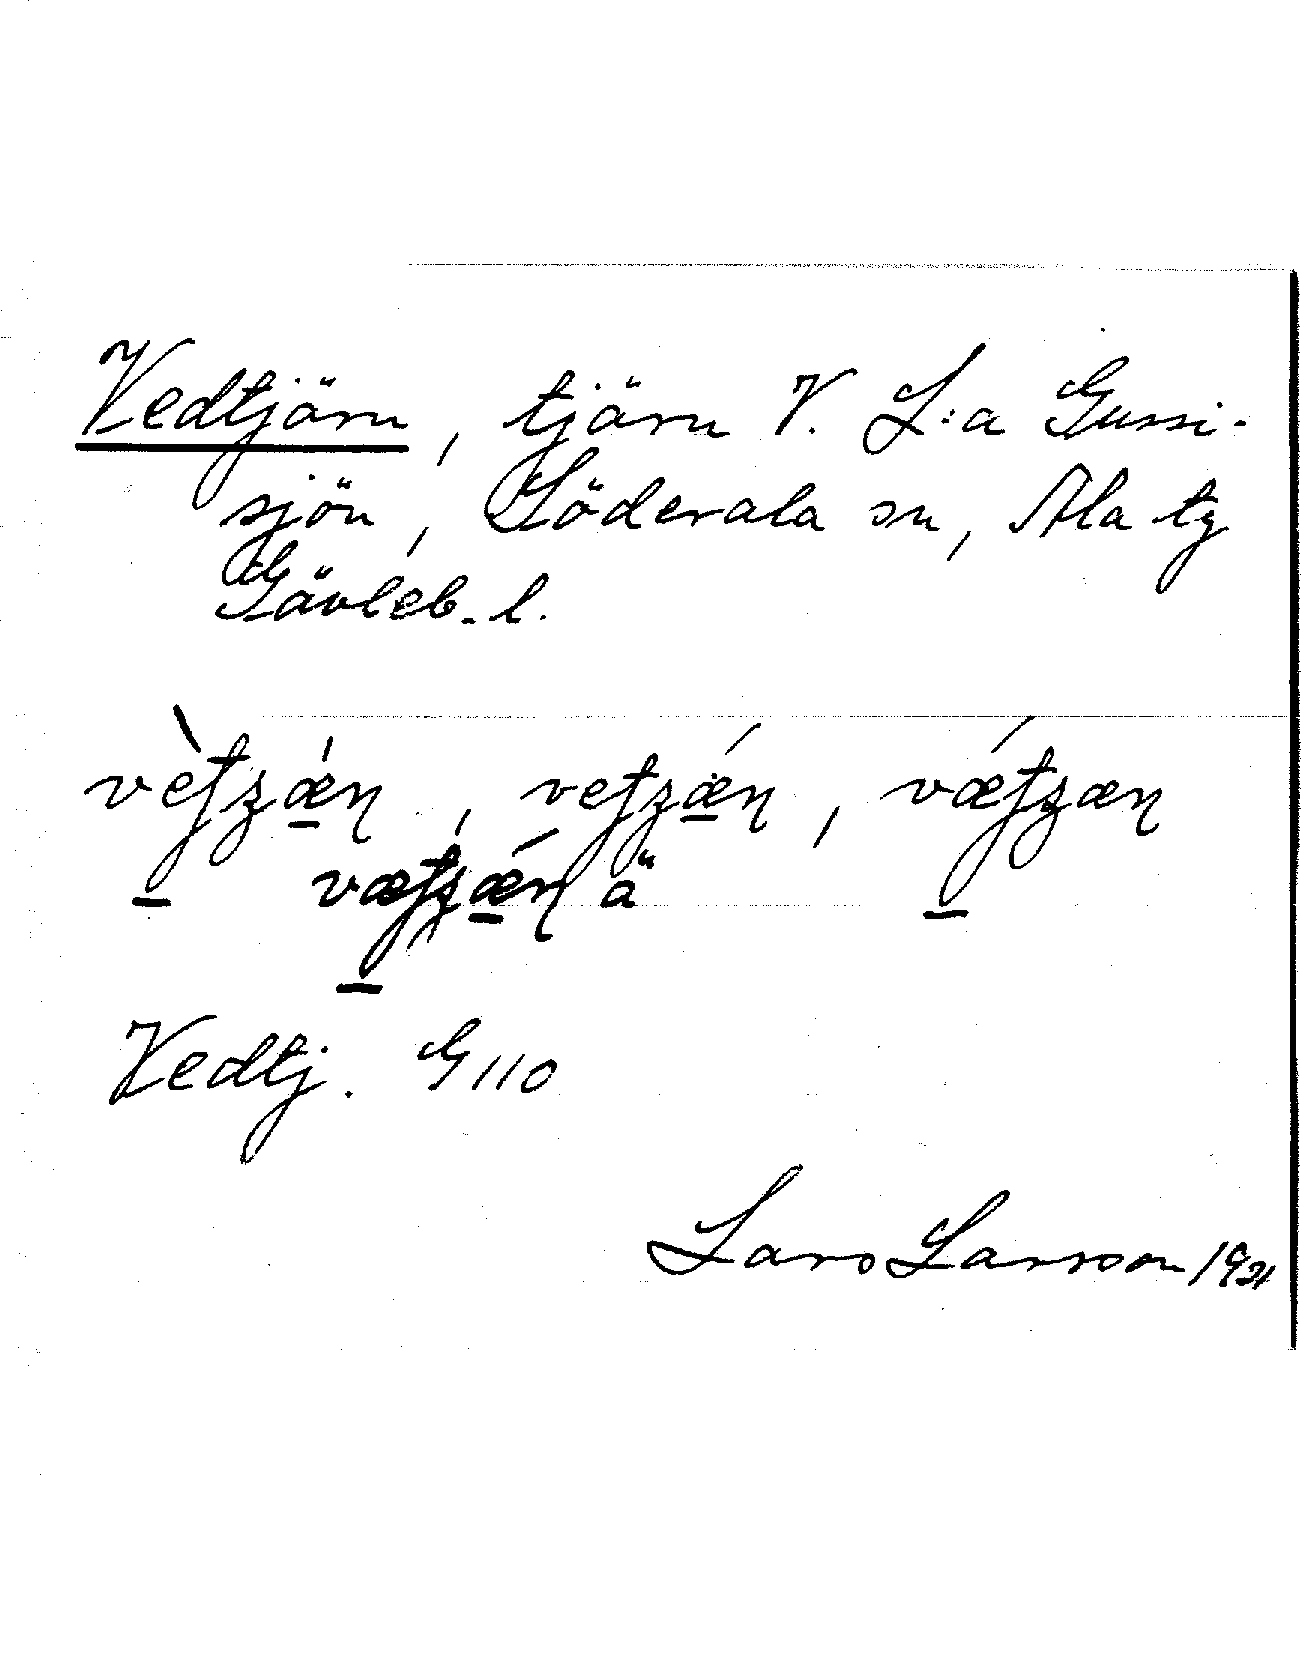 Vedtjärn, tjärn V. L:a Gussi-
sjön, Söderala sn, Ala tg
Gävleb. l.
vètʒæ̀n, vetʒǽn, vǽtʒæn
vætʒǽn ä
Vedtj. G 110
Lars Larsson 1921